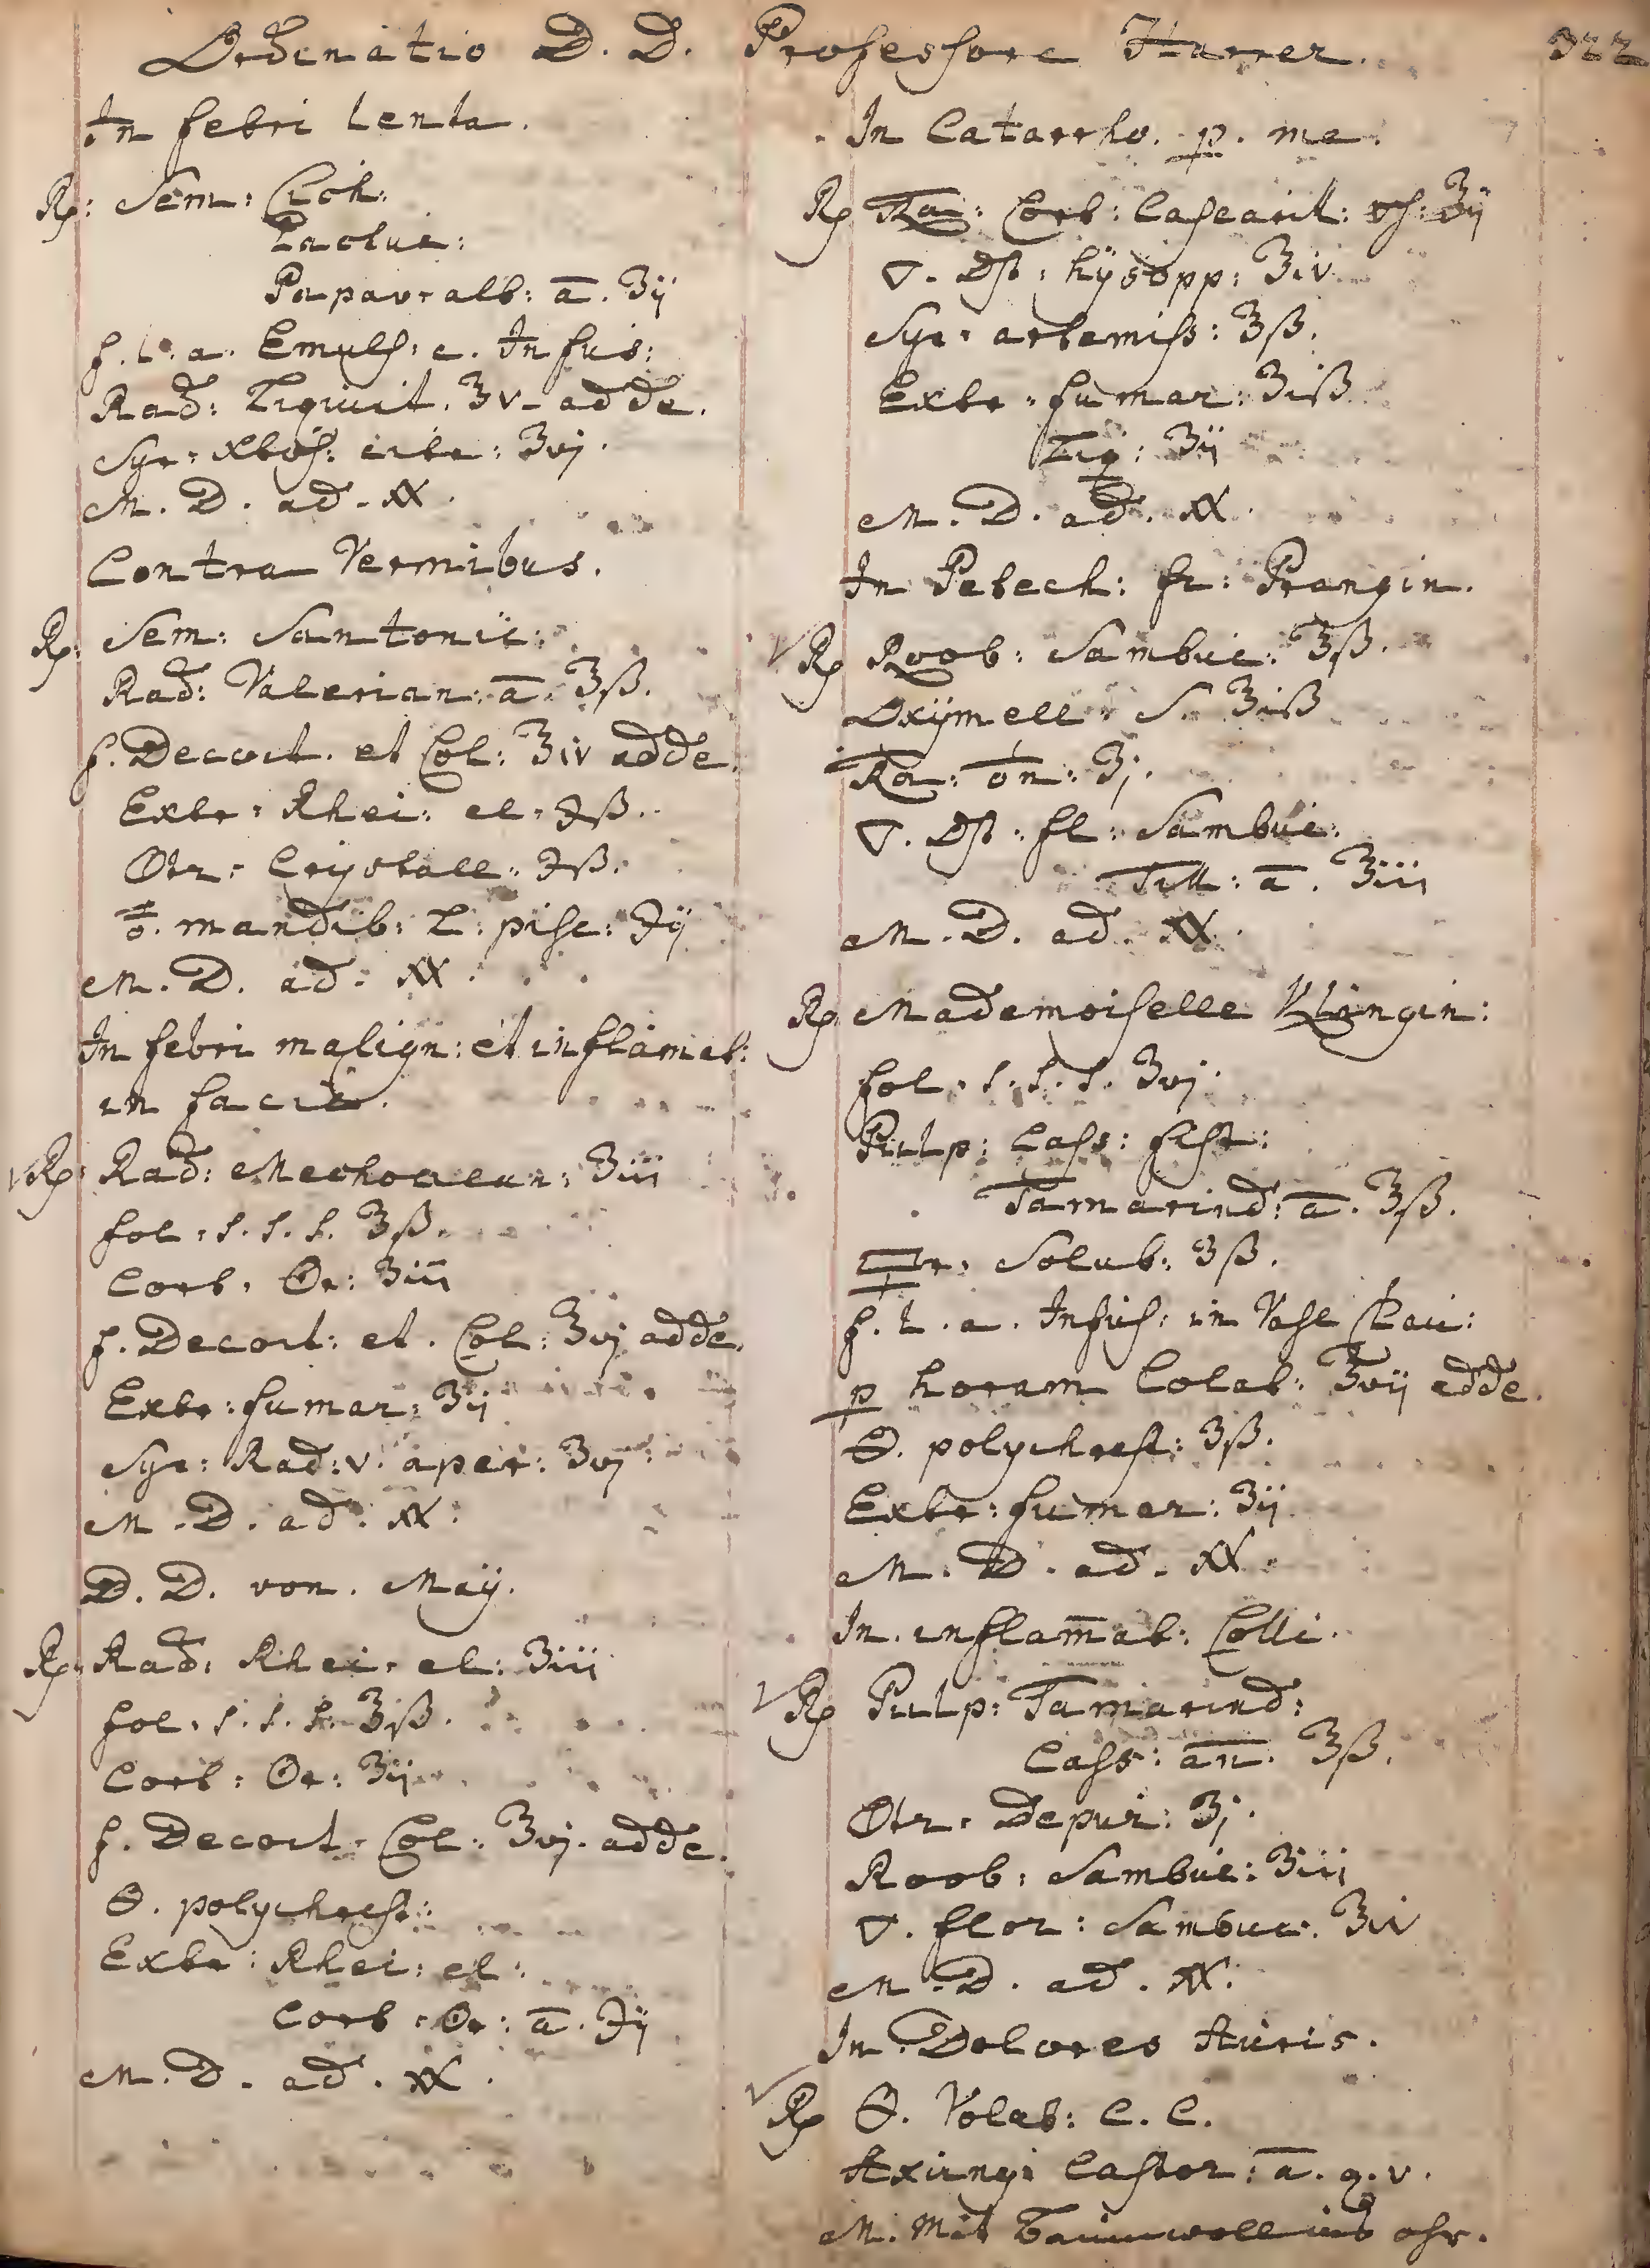 Ordinatio D. D. Professore Harrer.
322
In febri lenta.
Rp: Sem: Citoh:
Lactuc:
Papav: alb: a. ʒij
f. l. a. Emuls: c. Infus:
Rad: Liquirit. ʒv. adde.
Syr: citr: ʒvj.
M. D. ad. XX.
Contra Vermibus.
Rp: Sem: Santonic:
Rad: Valerian: a. ℥ß.
f. Decoct. et Col: ℥iv adde.
Extr: Rhei: el: ℈ß.
Crystall: ℈ß.
mandib: L: pisc: ℈ij
M. D. ad. XX.
In febri malign: et inflamat:
in facie.
Rp: Rad: Mechoacan: ʒiii
fol: s. s. s. ℥ß.
Cort: Or: ʒiii
f. Decoct: et. Col: ℥vj adde.
Extr: fumar: ʒij
Syr: Rad: v. aper: ʒvj
M. D. ad. XX:
D. D. von. Maÿ.
Rp: Rad: Rhei: el: ʒiii
fol: s. s. s. ℥iß.
Cort: Or: ʒij
f. Decoct. Col: ℥vj. adde.
🜔. polychrest:
Extr: Rhei: el:
Cort: Or: a. ℈ij
M. D. ad. XX.
In Catarrho. p. me.
Rp Ra: Cort: Cascarill: ʒij
🜄. Dst: hÿsopp: ℥iv
Syr: artemiss: ℥ß.
Extr: fumar: ʒiß
Liq: ʒij
M. D. ad. XX.
In Petech: fr: Prangin.
Rp Roob: Sambuc: ℥ß.
Oxÿmell: S. ℥iß
Ra: ʒj.
🜄. Dst: fl: Sambuc:
Till: a. ℥iii
M. D. ad. XX.
Rp Mademoiselle Klingin:
fol: s. s. s. ʒvj.
Pulp: Cass: fist:
Tamarind: a. ℥ß.
Solub: ʒß.
f. l. a. Infus: in Vase Clau:
p horam Colat: ℥vij adde.
🜔. polychrest: ʒß.
Extr: fumar: ʒij
M. D. ad. XX.
In. inflam̄at: Colli.
Rp Pulp: Tamarind:
Cass: an. ℥ß.
Depur: ʒj.
Roob: Sambuc: ʒiii
🜄. flor: Sambuc: ℥iv
M. D. ad. XX.
In Dolores Auris.
Rp 🜔. Volat: C. C.
Axungi Castor: a. q. v.
M. Mit baumwoll ins ohr.